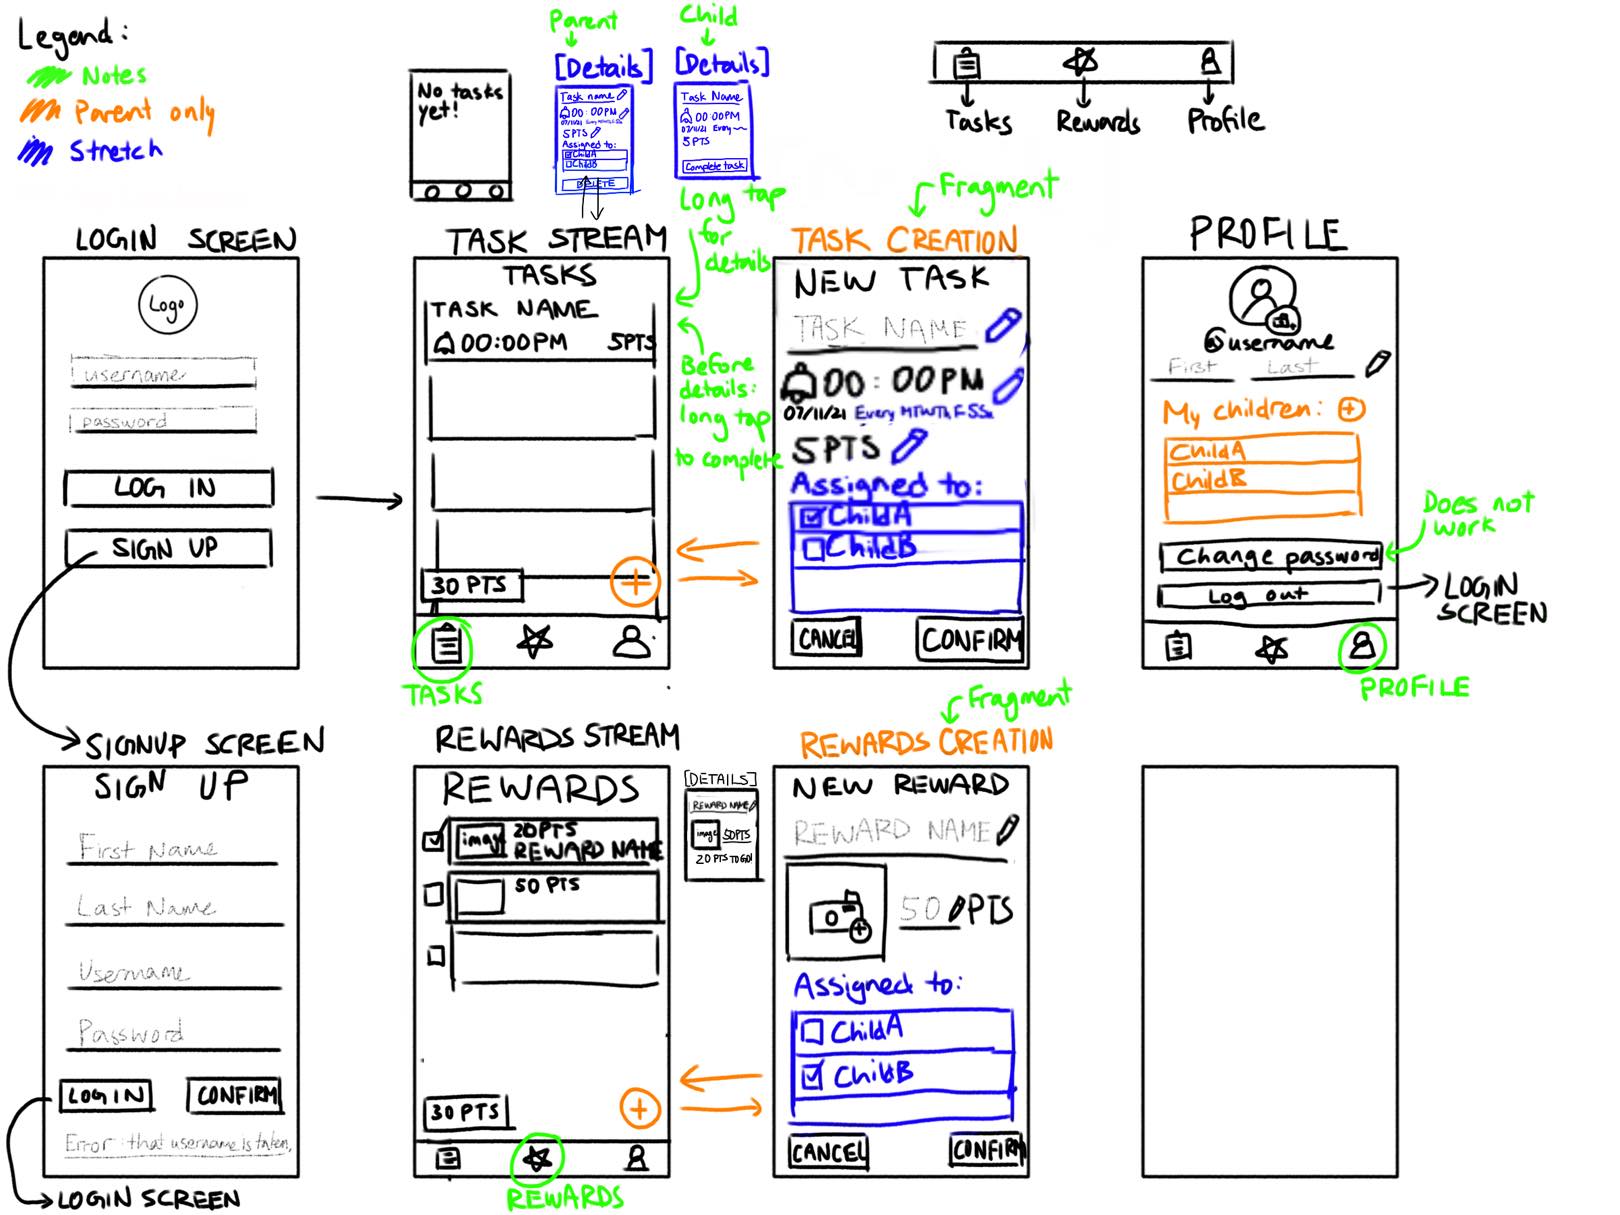 Legend:
Notes
Parent only
Stretch
No tasks
yet!
Parent
[Details]
Task name
00:00PM
07/11/21 Every MTWTh F SSu
5PTS
Assigned to:
ChildA
ChildB
DELETE
Child
[Details]
Task Name
00:00PM
07/11/21 Every
5 PTS
Complete task
Tasks
Rewards
Profile
LOGIN SCREEN
Logo
username
password
LOG IN
SIGN UP
TASK STREAM
TASKS
TASK NAME
00:00PM 5PTS
30 PTS
TASKS
Long tap
for
details
Before
details:
long tap
to complete
Fragment
TASK CREATION
NEW TASK
TASK NAME
00:00PM
07/11/21 Every MTWTh F SSu
5PTS
Assigned to:
ChildA
ChildB
CANCEL
CONFIRM
PROFILE
@username
First Last
My children:
ChildA
ChildB
Does not
work
Change password
Log out
LOGIN
SCREEN
PROFILE
SIGNUP SCREEN
SIGN UP
First Name
Last Name
Username
Password
LOGIN
CONFIRM
Error: that username is taken.
LOGIN SCREEN
REWARDS STREAM
REWARDS
image
20PTS
REWARD NAME
50 PTS
30 PTS
REWARDS
[DETAILS]
REWARD NAME
image 50PTS
20 PTS TO GO!
Fragment
REWARDS CREATION
NEW REWARD
REWARD NAME
50 PTS
Assigned to:
ChildA
ChildB
CANCEL
CONFIRM